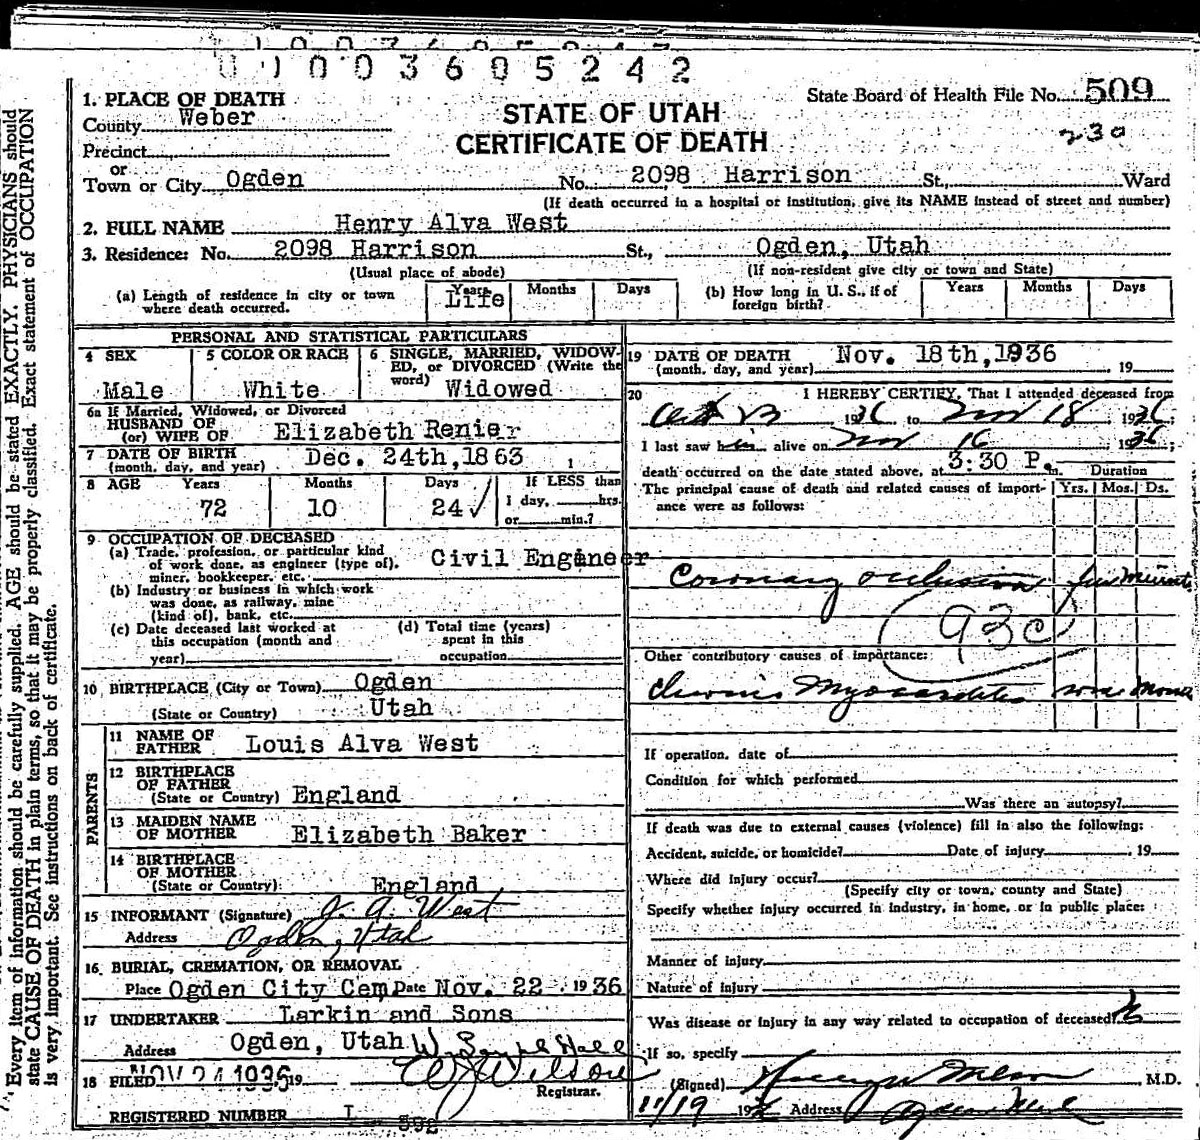 0100360524 2
1. PLACE OF DEATH
County Weber
Precinct
or
Town or City Ogden No. 2098 Harrison St., Ward
(If death occurred in a hospital or institution, give its NAME instead of street and number)
STATE OF UTAH
CERTIFICATE OF DEATH
State Board of Health File No. 509
230
2. FULL NAME Henry Alva West
3. Residence: No. 2098 Harrison St., Ogden, Utah
(Usual place of abode) (If non-resident give city or town and State)
(a) Length of residence in city or town where death occurred. Years Life Months Days
(b) How long in U. S., if of foreign birth? Years Months Days
PERSONAL AND STATISTICAL PARTICULARS
4 SEX Male
5 COLOR OR RACE White
6 SINGLE, MARRIED, WIDOWED, or DIVORCED (Write the word) Widowed
6a If Married, Widowed, or Divorced
HUSBAND OF
(or) WIFE OF Elizabeth Renier
7 DATE OF BIRTH
(month, day, and year) Dec. 24th, 1863
8 AGE Years 72 Months 10 Days 24 If LESS than
1 day, hrs.
or min.?
9 OCCUPATION OF DECEASED
(a) Trade, profession, or particular kind
of work done, as engineer (type of),
miner, bookkeeper, etc. Civil Engineer
(b) Industry or business in which work
was done, as railway, mine
(kind of), bank, etc.
(c) Date deceased last worked at
this occupation (month and
year)
(d) Total time (years)
spent in this
occupation
10 BIRTHPLACE (City or Town) Ogden
(State or Country) Utah
PARENTS
11 NAME OF
FATHER Louis Alva West
12 BIRTHPLACE
OF FATHER
(State or Country) England
13 MAIDEN NAME
OF MOTHER Elizabeth Baker
14 BIRTHPLACE
OF MOTHER
(State or Country) England
15 INFORMANT (Signature) J. A. West
Address Ogden, Utah
16. BURIAL, CREMATION, OR REMOVAL
Place Ogden City Cem. Date Nov. 22 1936
17 UNDERTAKER Larkin and Sons
Address Ogden, Utah
18 FILED NOV 24 1936 19 W Wilson
Registrar.
REGISTERED NUMBER I 592
19 DATE OF DEATH
(month, day, and year) Nov. 18th, 1936 19
20 I HEREBY CERTIFY, That I attended deceased from
Oct 1936 to Nov 18, 1936,
I last saw him alive on Nov 16 1936;
death occurred on the date stated above, at 3:30 P. m. Duration
The principal cause of death and related causes of importance were as follows: Yrs. Mos. Ds.
Coronary occlusion few minutes
93c
Other contributory causes of importance:
Chronic Myocarditis
If operation, date of
Condition for which performed
Was there an autopsy?
If death was due to external causes (violence) fill in also the following:
Accident, suicide, or homicide? Date of injury 19
Where did injury occur?
(Specify city or town, county and State)
Specify whether injury occurred in industry, in home, or in public place:
Manner of injury
Nature of injury
Was disease or injury in any way related to occupation of deceased?
If so, specify
(Signed) M.D.
11/19 1936 Address Ogden Utah
Every item of information should be carefully supplied. AGE should be stated EXACTLY. PHYSICIANS should
state CAUSE OF DEATH in plain terms, so that it may be properly classified. Exact statement of OCCUPATION
is very important. See instructions on back of certificate.